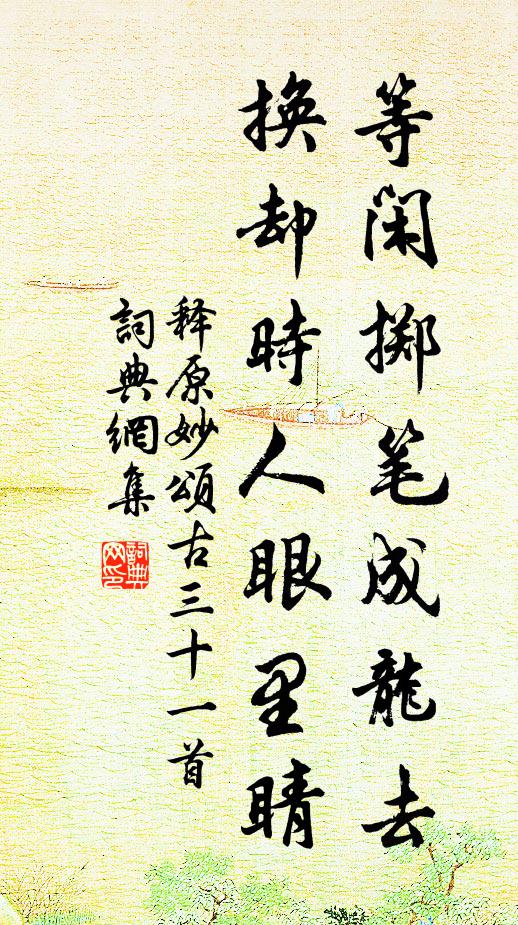 等闲掷笔成龍去
換却時人眼里睛
释原妙頌古三十一首
詞典網集
詞典网印